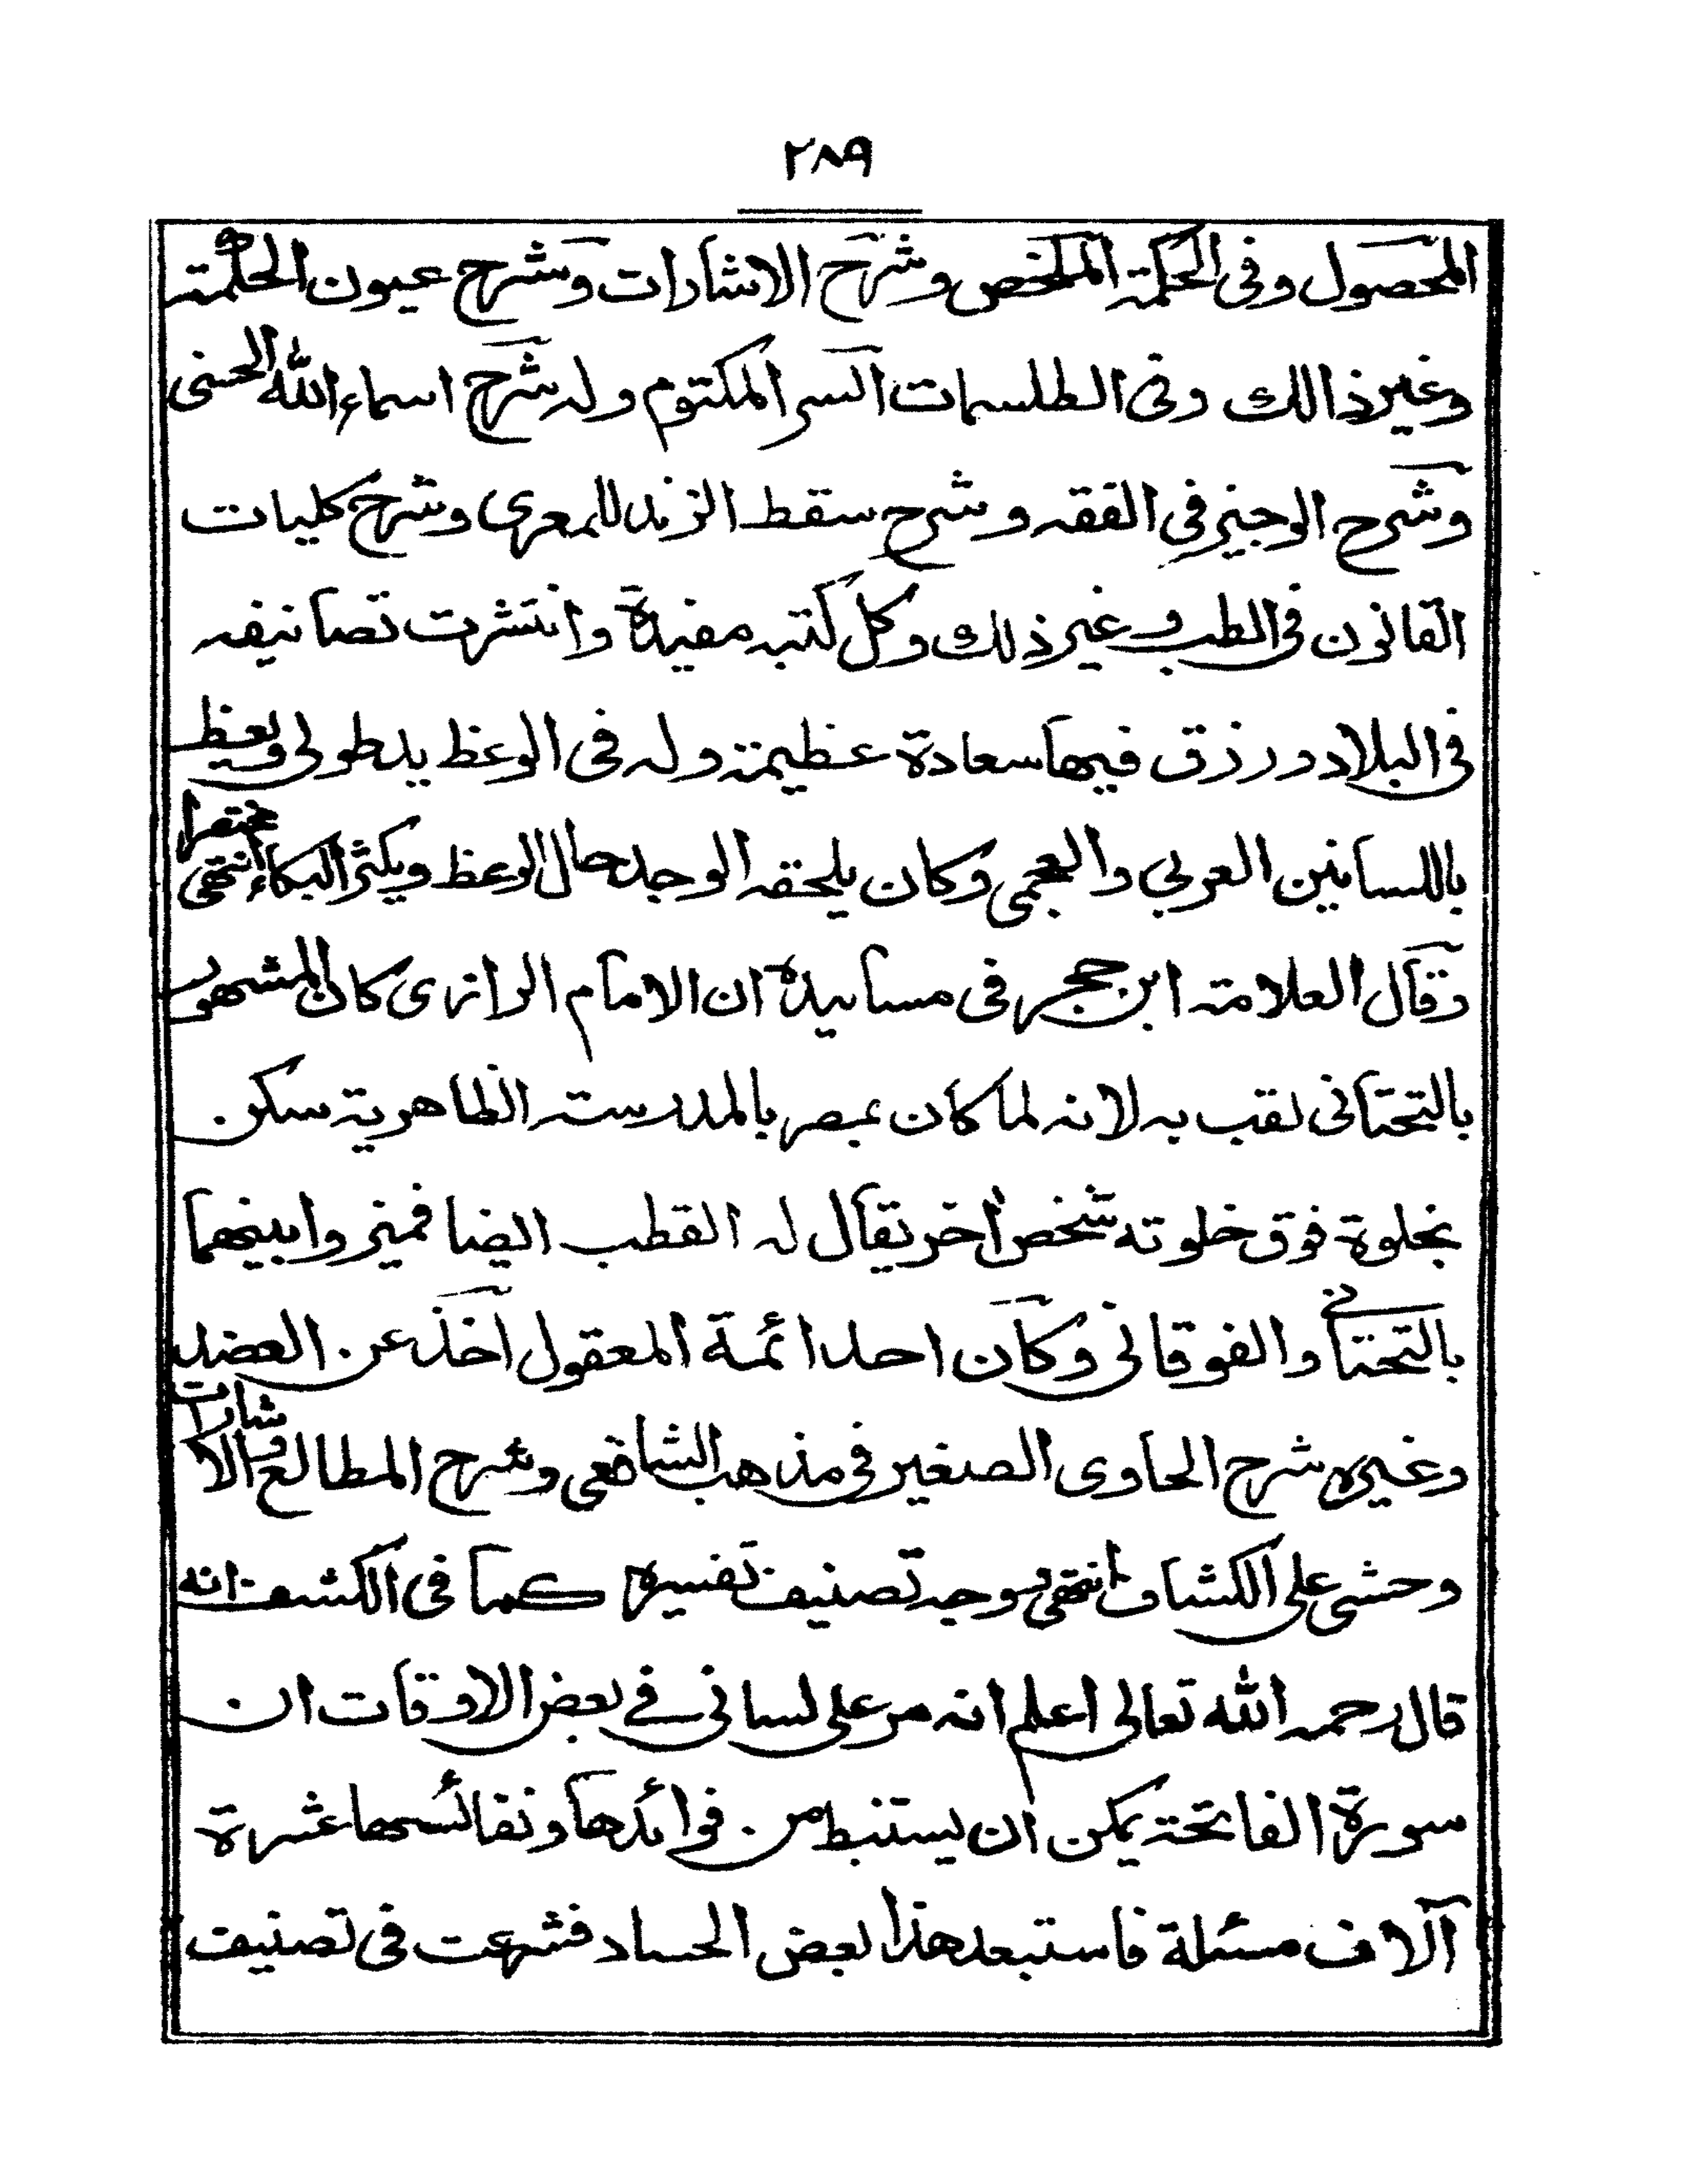 ٢٨٩
المحصول وفى الحكمة الملخص وشرح الاشارات وشرح عيون الحكمة
وغير ذالك وفى الطلسمات السر المكتوم وله شرح اسماء الله الحسنى
وشرح الوجيز فى الفقه وشرح سقط الزند للمعرى وشرح كليات
القانون فى الطب وغير ذلك وكل كتبه مفيدة وانتشرت تصانيفه
فى البلاد ورزق فيها سعادة عظيمة وله فى الوعظ يد طولى ويعظ
باللسانين العربي والعجمى وكان يلحقه الوجد حال الوعظ ويكثر البكاء انتهى مختصرا
وقال العلامة ابن حجر فى مسانيده ان الامام الرازى كان المشهور
بالتحتانى لقب به لانه لما كان بمصر بالمدرسة الظاهرية سكن
بخلوة فوق خلوته شخص اخر يقال له القطب ايضا فميزوا بينهما
بالتحتانى والفوقانى وكان احد ائمة المعقول اخذ عن العضد
وغيره شرح الحاوى الصغير فى مذهب الشافعى وشرح المطالع والاشارات
وحشى على الكشاف انتهى وجه تصنيف تفسيره كما فى الكشف انه
قال رحمه الله تعالى اعلم انه مر على لسانى فى بعض الاوقات ان
سورة الفاتحة يمكن ان يستنبط من فوائدها ونفائسها عشرة
آلاف مسئلة فاستبعد هذا بعض الحساد فشرعت فى تصنيف